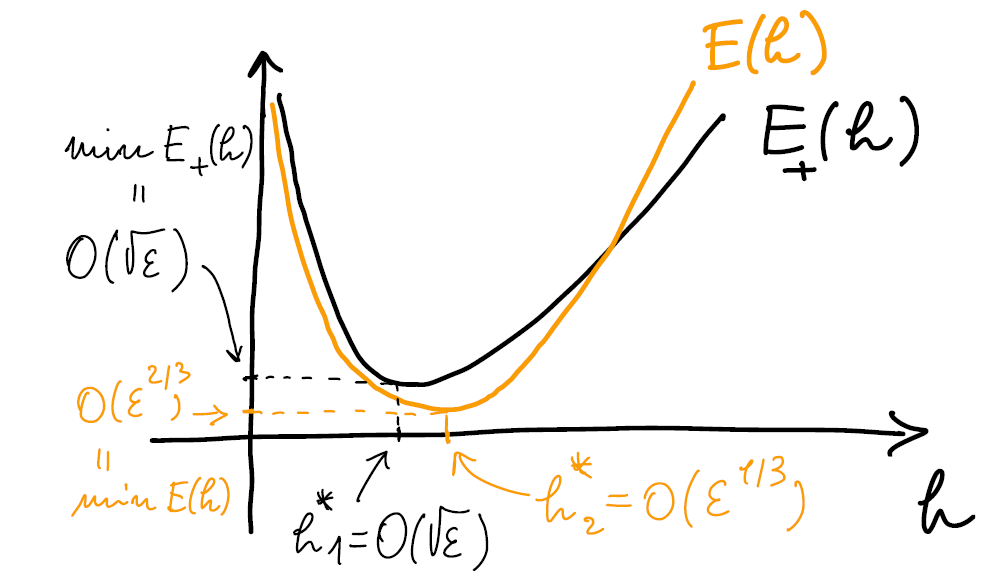 E(h)
E₊(h)
min E₊(h)
=
O(√ε)
O(ε^{2/3})
=
min E(h)
h₁* = O(√ε)
h₂* = O(ε^{1/3})
h